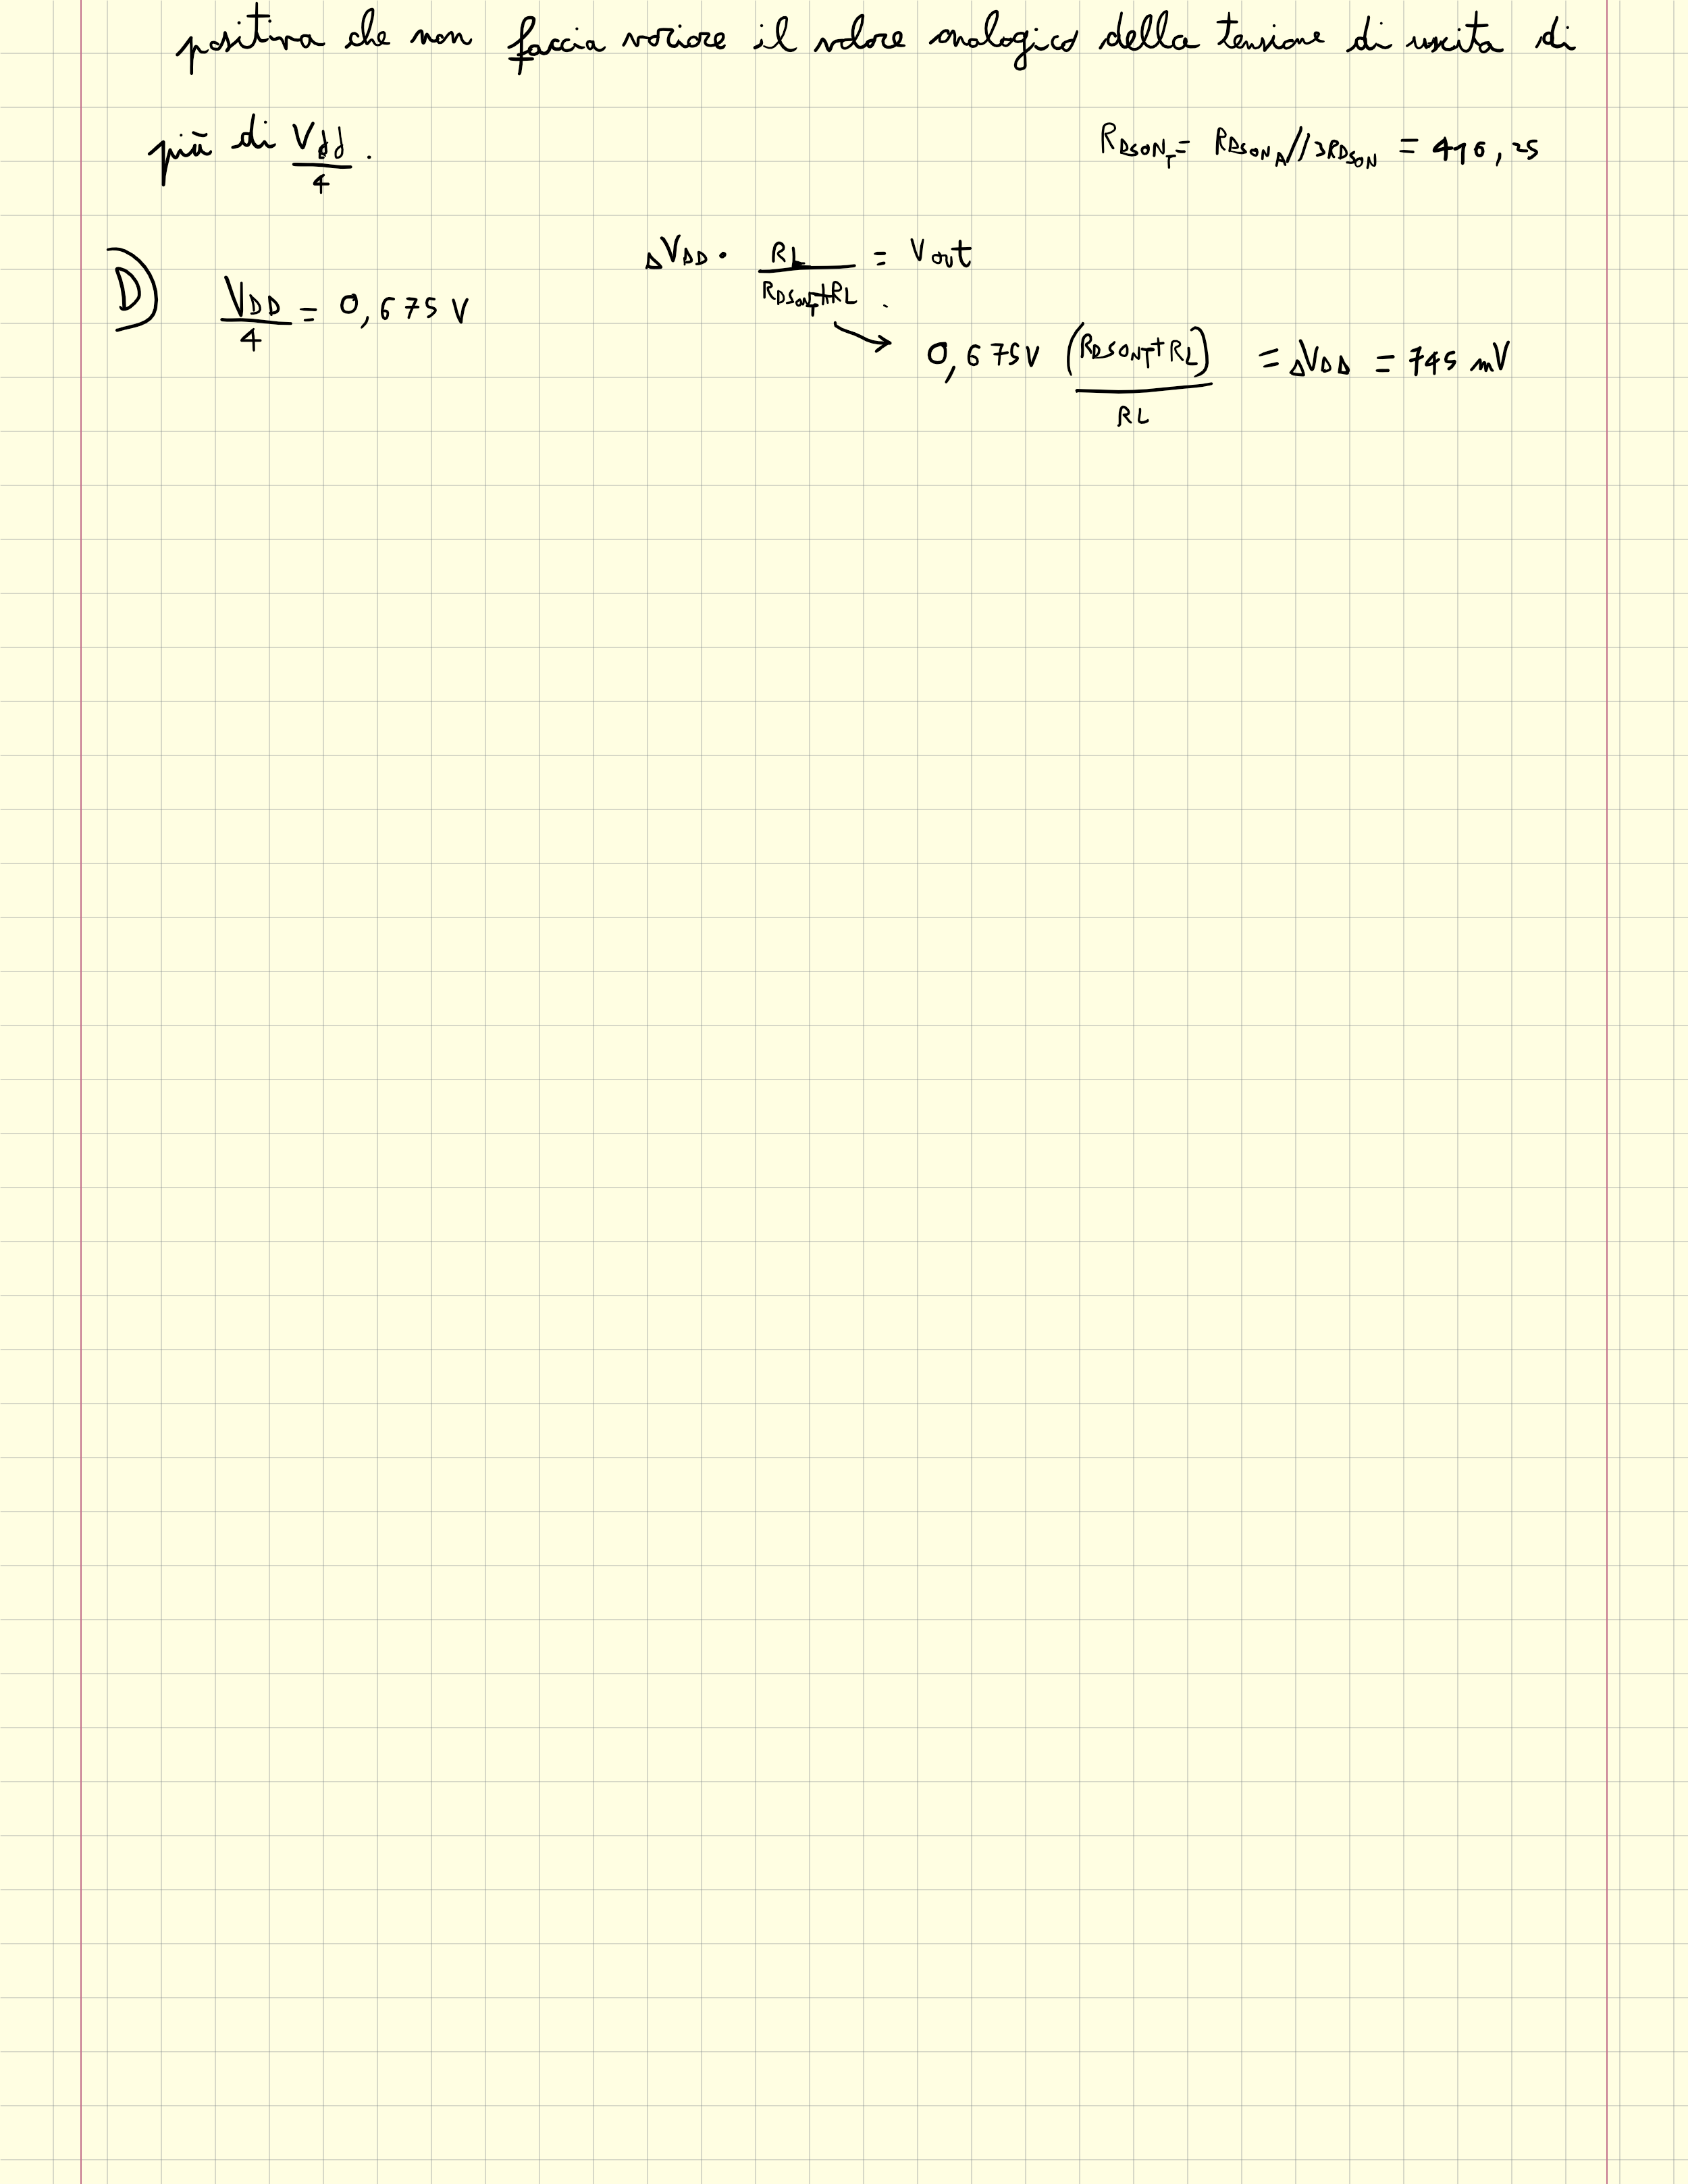 positiva che non faccia variare il valore analogico della tensione di uscita di
più di Vdd/4.
RDSON_T = RDSON_A // 3RDSON = 416,25
D) VDD/4 = 0,675 V
ΔVDD · RL/(RDSON_T+RL) = Vout
→ 0,675V (RDSON_T+RL)/RL = ΔVDD = 745 mV